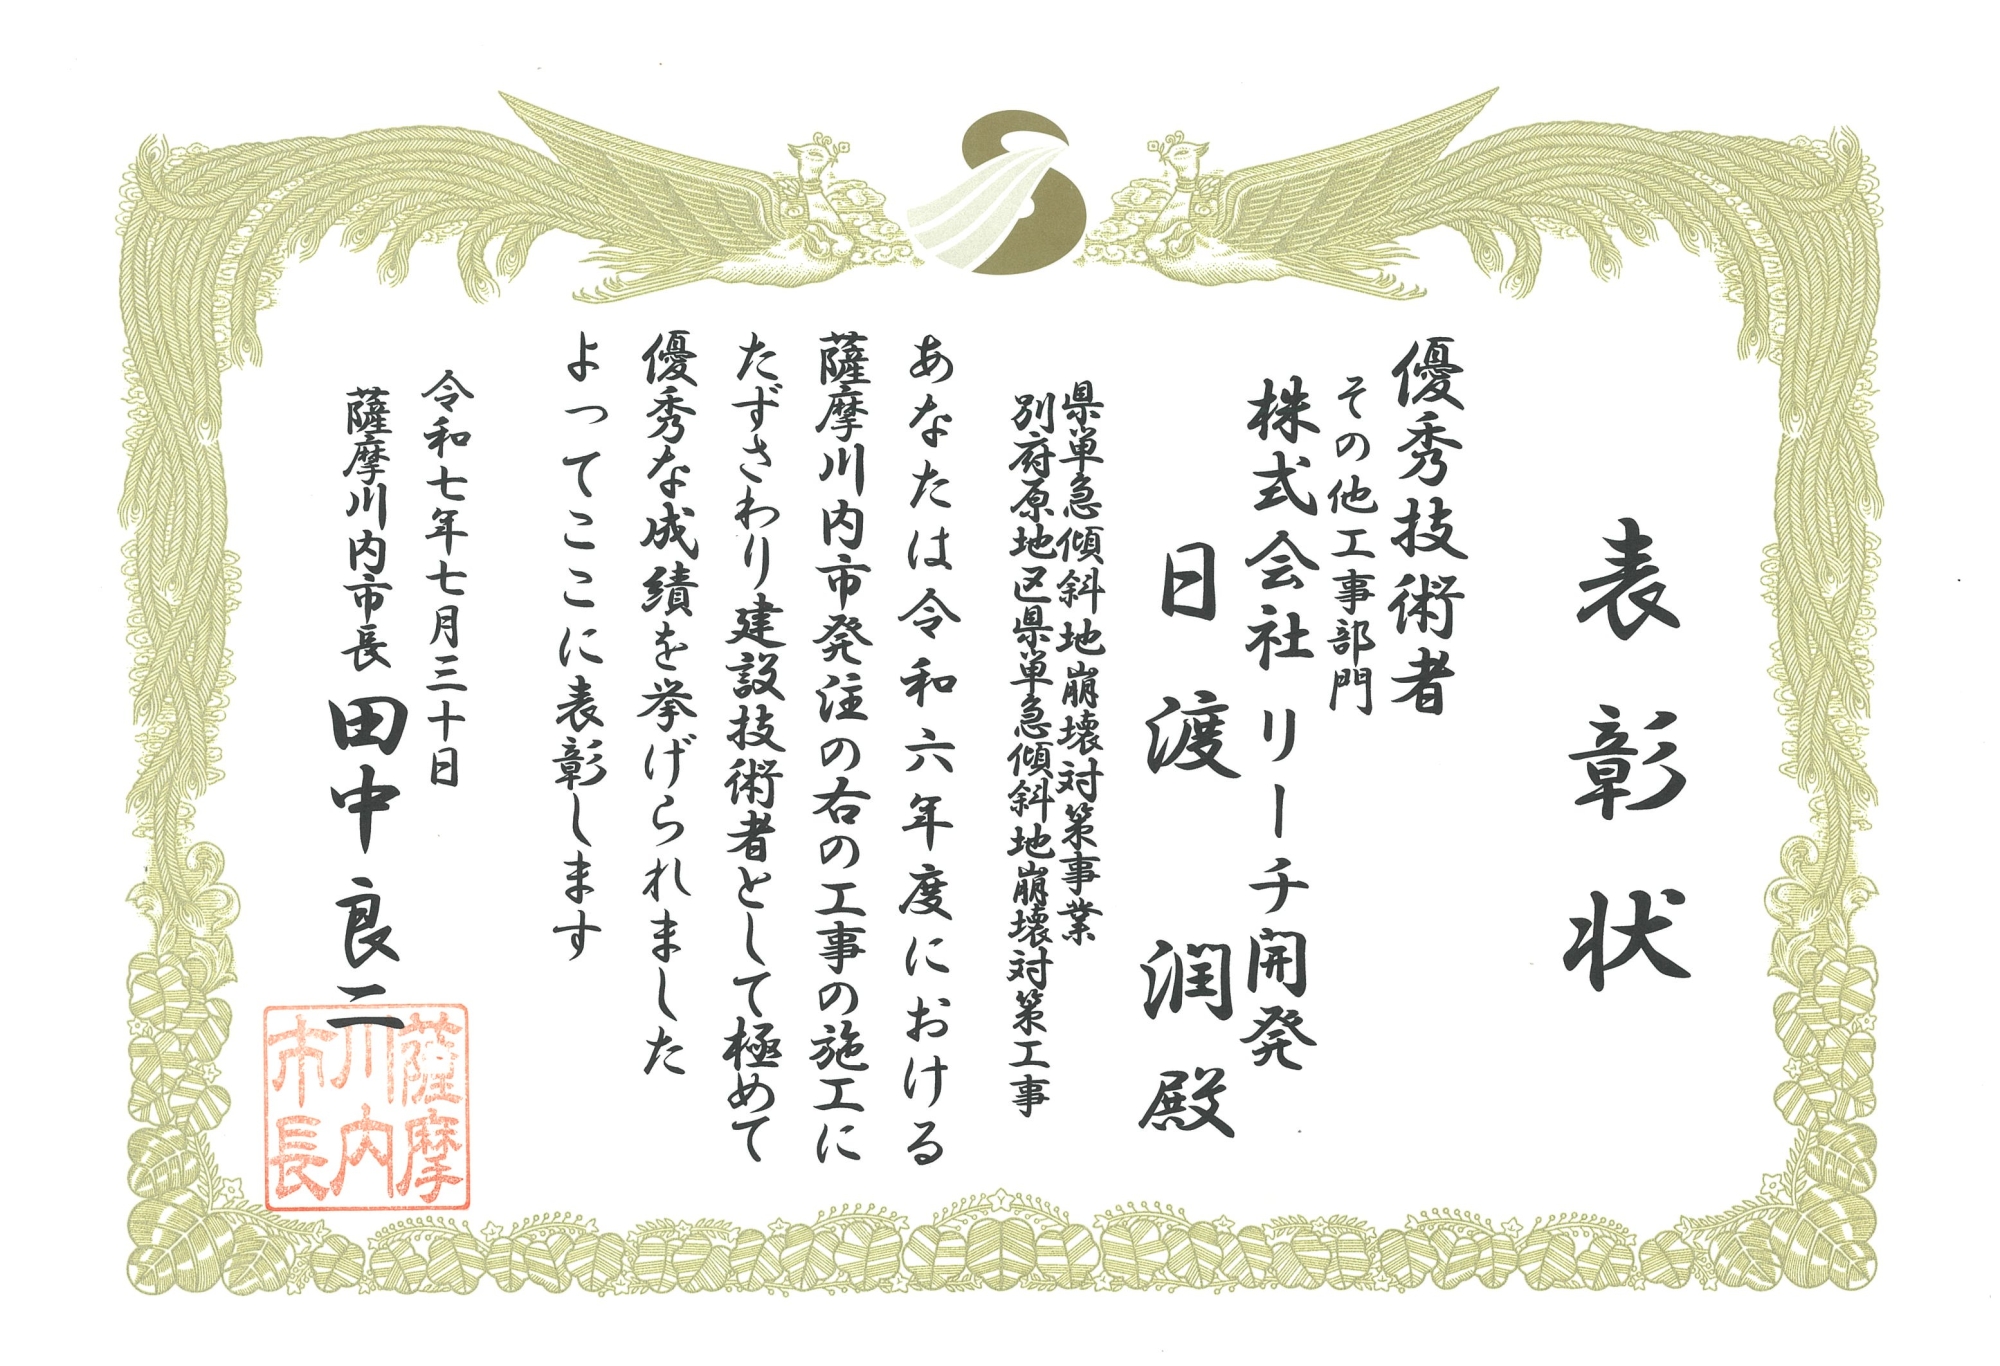 表彰状
優秀技術者
その他工事部門
株式会社リーチ開発
日渡 潤 殿
県単急傾斜地崩壊対策事業
別府原地区県単急傾斜地崩壊対策工事
あなたは令和六年度における
薩摩川内市発注の右の工事の施工に
たずさわり建設技術者として極めて
優秀な成績を挙げられました
よってここに表彰します
令和七年七月三十日
薩摩川内市長 田中良二
薩摩
川内
市長